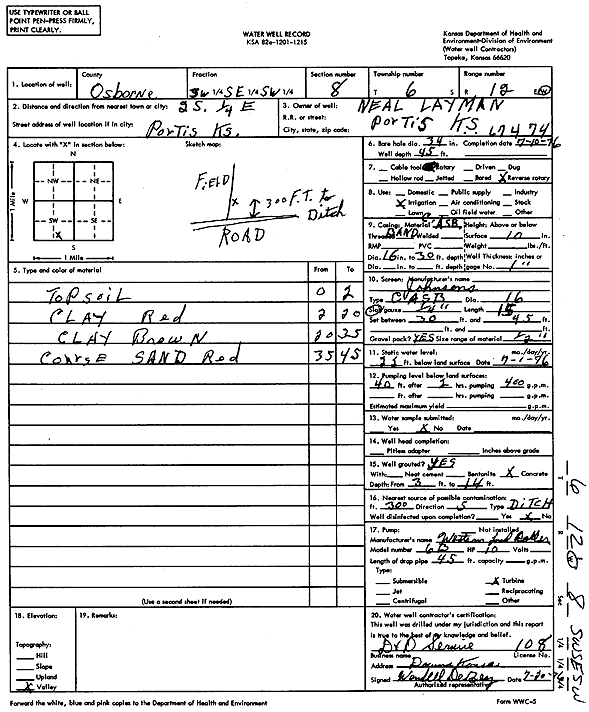 USE TYPEWRITER OR BALL
POINT PEN-PRESS FIRMLY,
PRINT CLEARLY.
WATER WELL RECORD
KSA 82a-1201-1215
Kansas Department of Health and
Environment-Division of Environment
(Water well Contractors)
Topeka, Kansas 66620
1. Location of well:
County
Osborne
Fraction
SW 1/4 SE 1/4 SW 1/4
Section number
8
Township number
T 6 S
Range number
R 12 E/W
2. Distance and direction from nearest town or city: 2S. 1/4 E
Street address of well location if in city:
Portis Ks.
3. Owner of well: NEAL LAYMAN
R.R. or street:
City, state, zip code: Portis KS. 67474
4. Locate with "X" in section below:
N
NW NE
W E
SW SE
X
S
1 Mile
1 Mile
Sketch map:
FIELD
X 300 F.T. to
Ditch
ROAD
6. Bore hole dia. 34 in. Completion date 7-10-76
Well depth 45 ft.
7. Cable tool Rotary Driven Dug
Hollow rod Jetted Bored X Reverse rotary
8. Use: Domestic Public supply Industry
X Irrigation Air conditioning Stock
Lawn Oil field water Other
9. Casing: Material CASB Height: Above or below
Threaded Welded Surface 10 in.
RMP PVC Weight lbs./ft.
Dia. 16 in. to 30 ft. depth Wall Thickness: inches or
Dia. in. to ft. depth gage No. 1"
5. Type and color of material
From To
Topsoil 0 2
CLAY Red 2 20
CLAY Brown 20 35
Coarse SAND Red 35 45
(Use a second sheet if needed)
10. Screen: Manufacturer's name
Johnsons
Type CASB Dia. 16
Slot/gauze Length 15
Set between 30 ft. and 45 ft.
ft. and ft.
Gravel pack? YES Size range of material
11. Static water level: mo./day/yr.
ft. below land surface Date 7-1-76
12. Pumping level below land surfaces:
40 ft. after 2 hrs. pumping 400 g.p.m.
ft. after hrs. pumping g.p.m.
Estimated maximum yield g.p.m.
13. Water sample submitted: mo./day/yr.
Yes X No Date
14. Well head completion:
Pitless adapter Inches above grade
15. Well grouted? YES
With: Neat cement Bentonite X Concrete
Depth: From 3 ft. to 14 ft.
16. Nearest source of possible contamination:
ft. 300 Direction S Type DITCH
Well disinfected upon completion? Yes X No
17. Pump: Not installed
Manufacturer's name Western Land Roller
Model number 6B HP 10 Volts
Length of drop pipe 45 ft. capacity g.p.m.
Type:
Submersible X Turbine
Jet Reciprocating
Centrifugal Other
18. Elevation:
Topography:
Hill
Slope
Upland
X Valley
19. Remarks:
20. Water well contractor's certification:
This well was drilled under my jurisdiction and this report
is true to the best of my knowledge and belief.
D&D Service 108
Business name License No.
Address Downs Kansas
Signed Date 7-20-76
Authorized representative
Forward the white, blue and pink copies to the Department of Health and Environment
Form WWC-5
T 6
R 12 W
Sec 8
1/4 1/4 1/4 SW SE SW